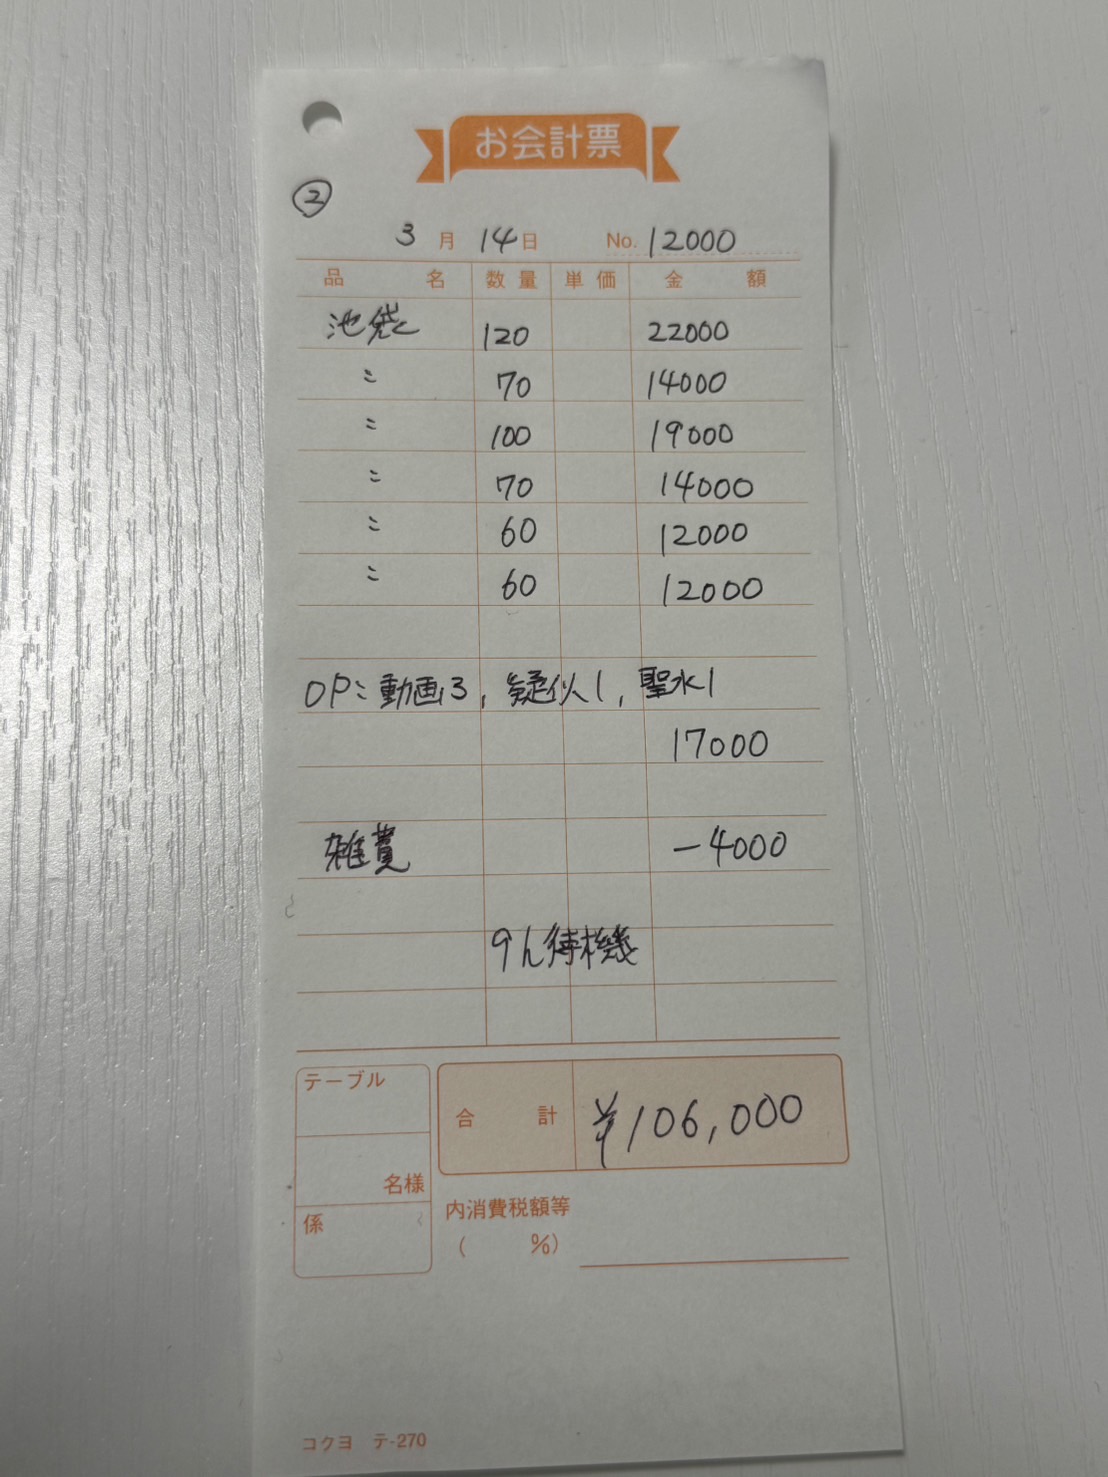 お会計票
②
3月14日 No.12000
品名 数量 単価 金額
池袋 120 22000
〃 70 14000
〃 100 19000
〃 70 14000
〃 60 12000
〃 60 12000
OP: 動画3, 疑似1, 聖水1
17000
雑費 -4000
9h待機
テーブル
合計 ¥106,000
名様
係
内消費税額等
( %)
コクヨ テ-270